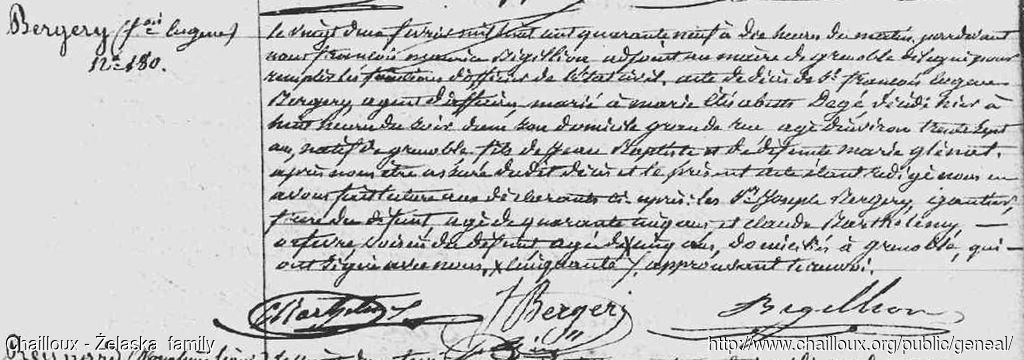 Bergery (f.ois Eugene)
N.o 180.
Le vingt deux février mil huit cent quarante neuf à dix heures du matin, pardevant
nous françois maurice Bigillion adjoint au maire de grenoble délégué pour
remplir les fonctions d'officier de l'état civil, acte de décès de s.r françois eugene
Bergery, agent d'affaires, marié à marie élisabeth Dagé décédé hier à
huit heures du soir dans son domicile grande rue agé d'environ trente sept
ans, natif de grenoble fils de Jean Baptiste et de défunte marie glénat.
après nous être assuré dudit décès et le présent acte étant rédigé nous en
avons fait lecture aux déclarants ci-après: les s.rs Joseph Bergery, gantier,
frère du défunt, agé de quarante cinq ans, et claude Barthélemy, —
orfèvre, voisin du défunt agé de x cinq ans, domiciliés à grenoble, qui —
ont signé avec nous, x cinquante /. approuvant le renvoi.
CBarthelemy
J Bergery
Bigillion
Chailloux - Żelaska family
http://www.chailloux.org/public/geneal/